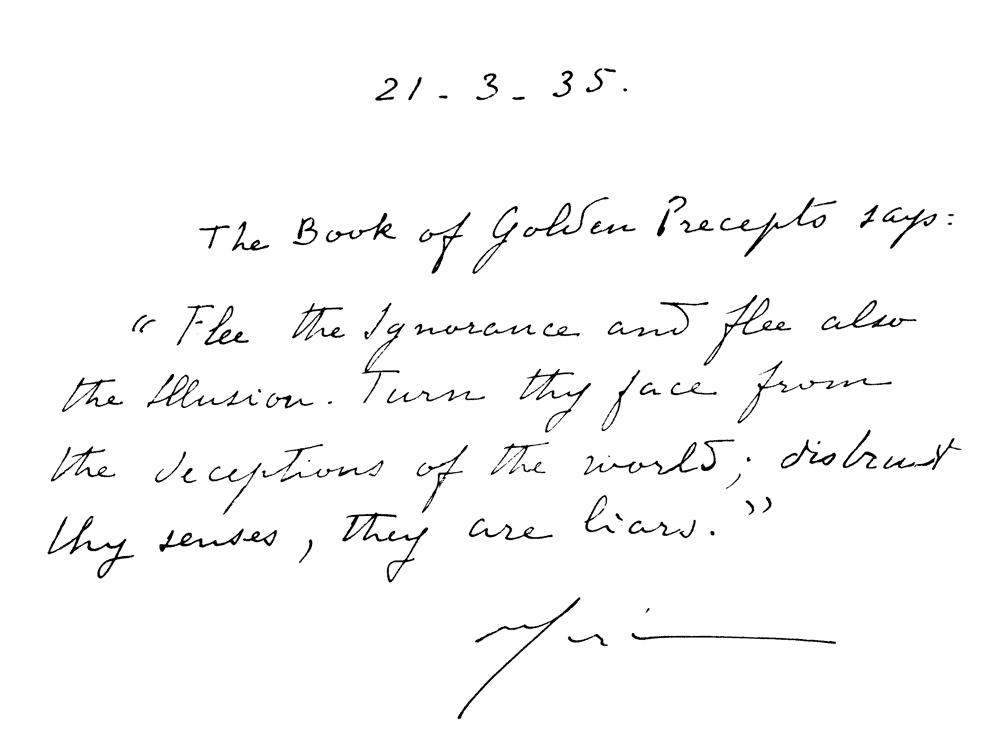 21 - 3 - 35.
The Book of Golden Precepts says:
“ Flee the Ignorance and flee also
the Illusion. Turn thy face from
the deceptions of the world; distrust
thy senses, they are liars.”